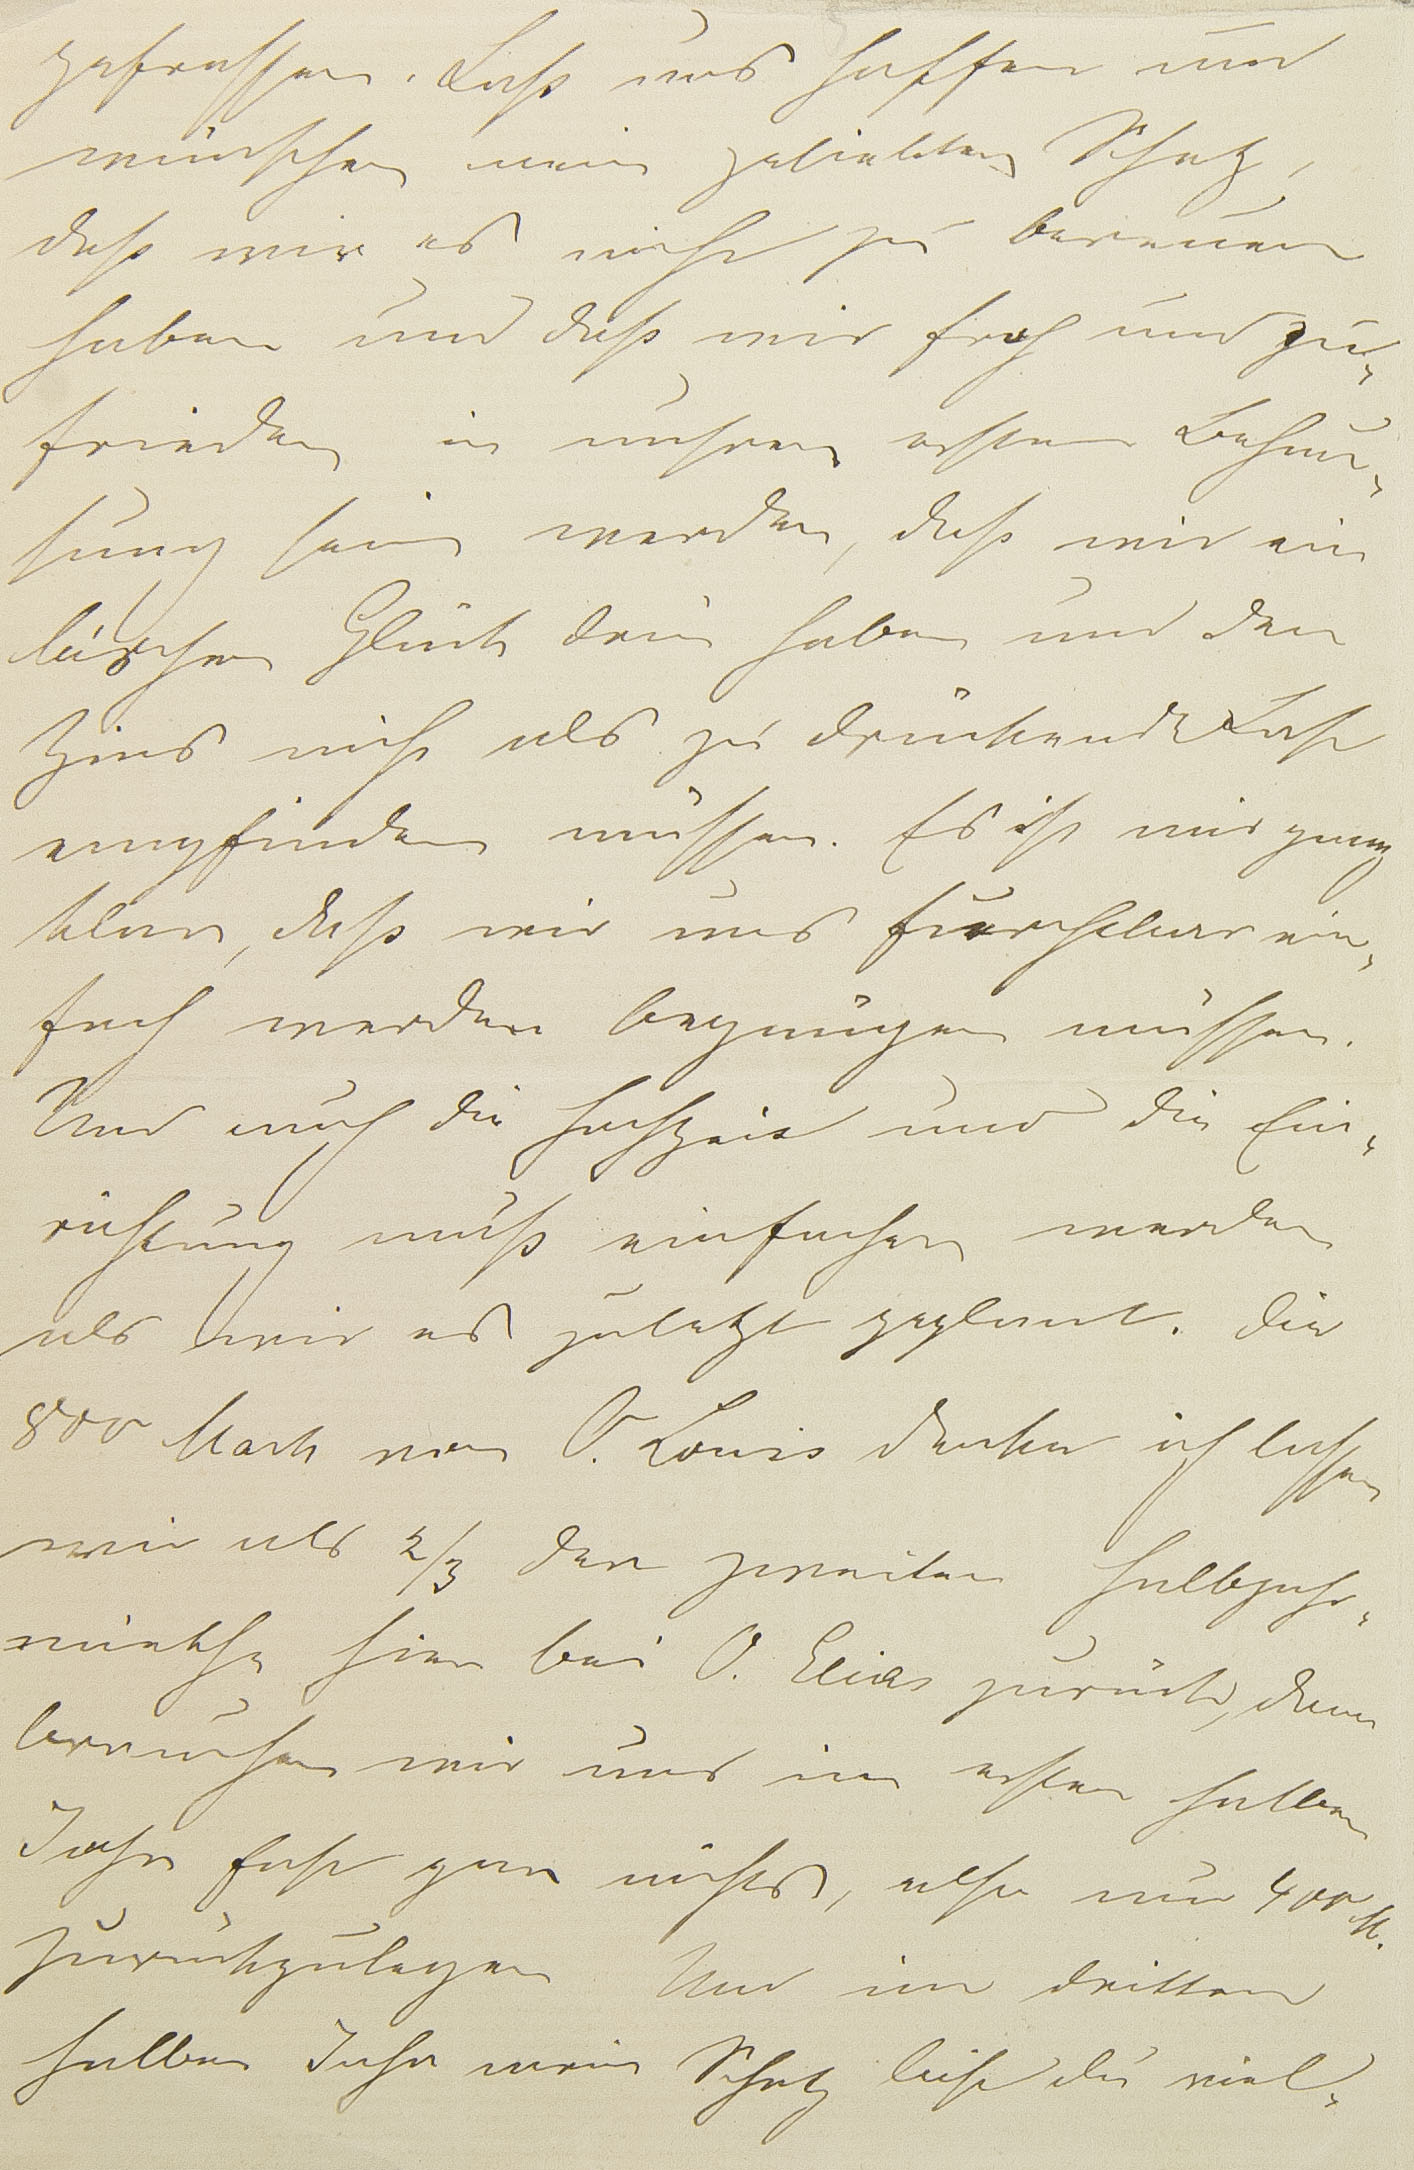 getroffen. Laß uns hoffen und
wünschen mein geliebter Schatz,
daß wir es nicht zu bereuen
haben und daß wir froh und zu-
frieden in unsrer ersten Behau-
sung sein werden, daß wir ein
bischen Glück drin haben und den
Zins nicht als zu drückende Last
empfinden müssen. Es ist mir ganz
klar, daß wir uns furchtbar ein-
fach werden begnügen müssen.
Und auch die Hochzeit und die Ein-
richtung muß einfacher werden
als wir es zuletzt geplant. Die
800 Mark von O. Louis denke ich lassen
wir als 2/3 der zweiten Halbjahr-
miethe hier bei O. Elias zurück, dann
brauchen wir uns im ersten halben
Jahr fast gar nichts, also nur 400 M.
zurückzulegen Und im dritten
halben Jahr mein Schatz bist du viel-